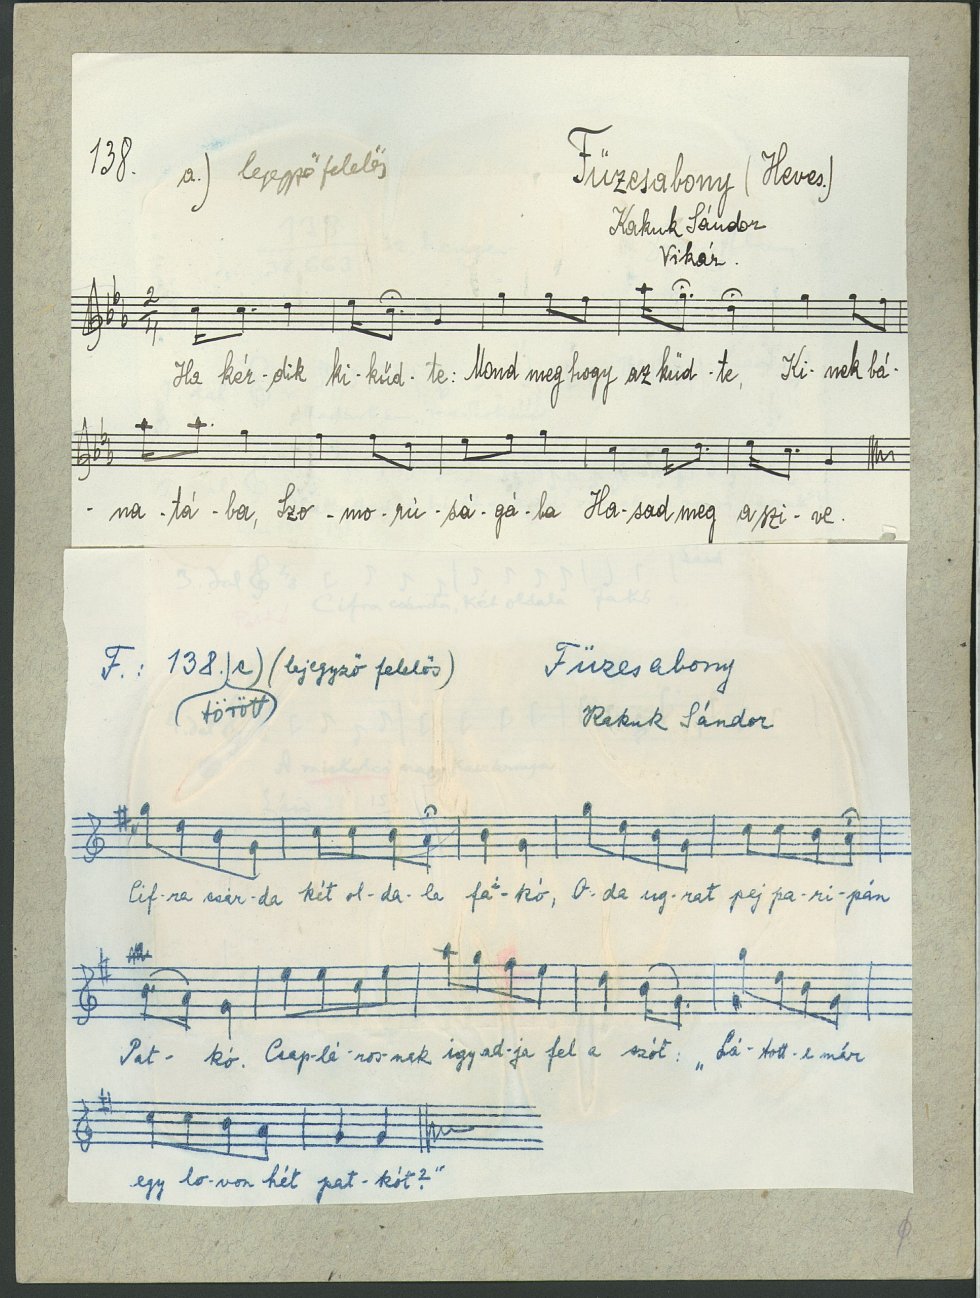 138. a.) lejegyző felelős
Füzesabony (Heves.)
Kakuk Sándor
Vikár.
2/4
Ha kér-dik ki-küd-te: Mond meg hogy az küd-te, Ki-nek bá-
- na-tá-ba, Szo-mo-rú-sá-gá-ba Ha-sad meg a szi-ve.
F.: 138. c) (lejegyző felelős)
Füzesabony
(törött)
Kakuk Sándor
Cif-ra csár-da két ol-da-la fá-kó, O-da ug-rat pej pa-ri-pán
Pat-kó. Csap-lá-ros-nak igy ad-ja fel a szót: „Lá-tott-e már
egy lo-von hét pat-kót?"